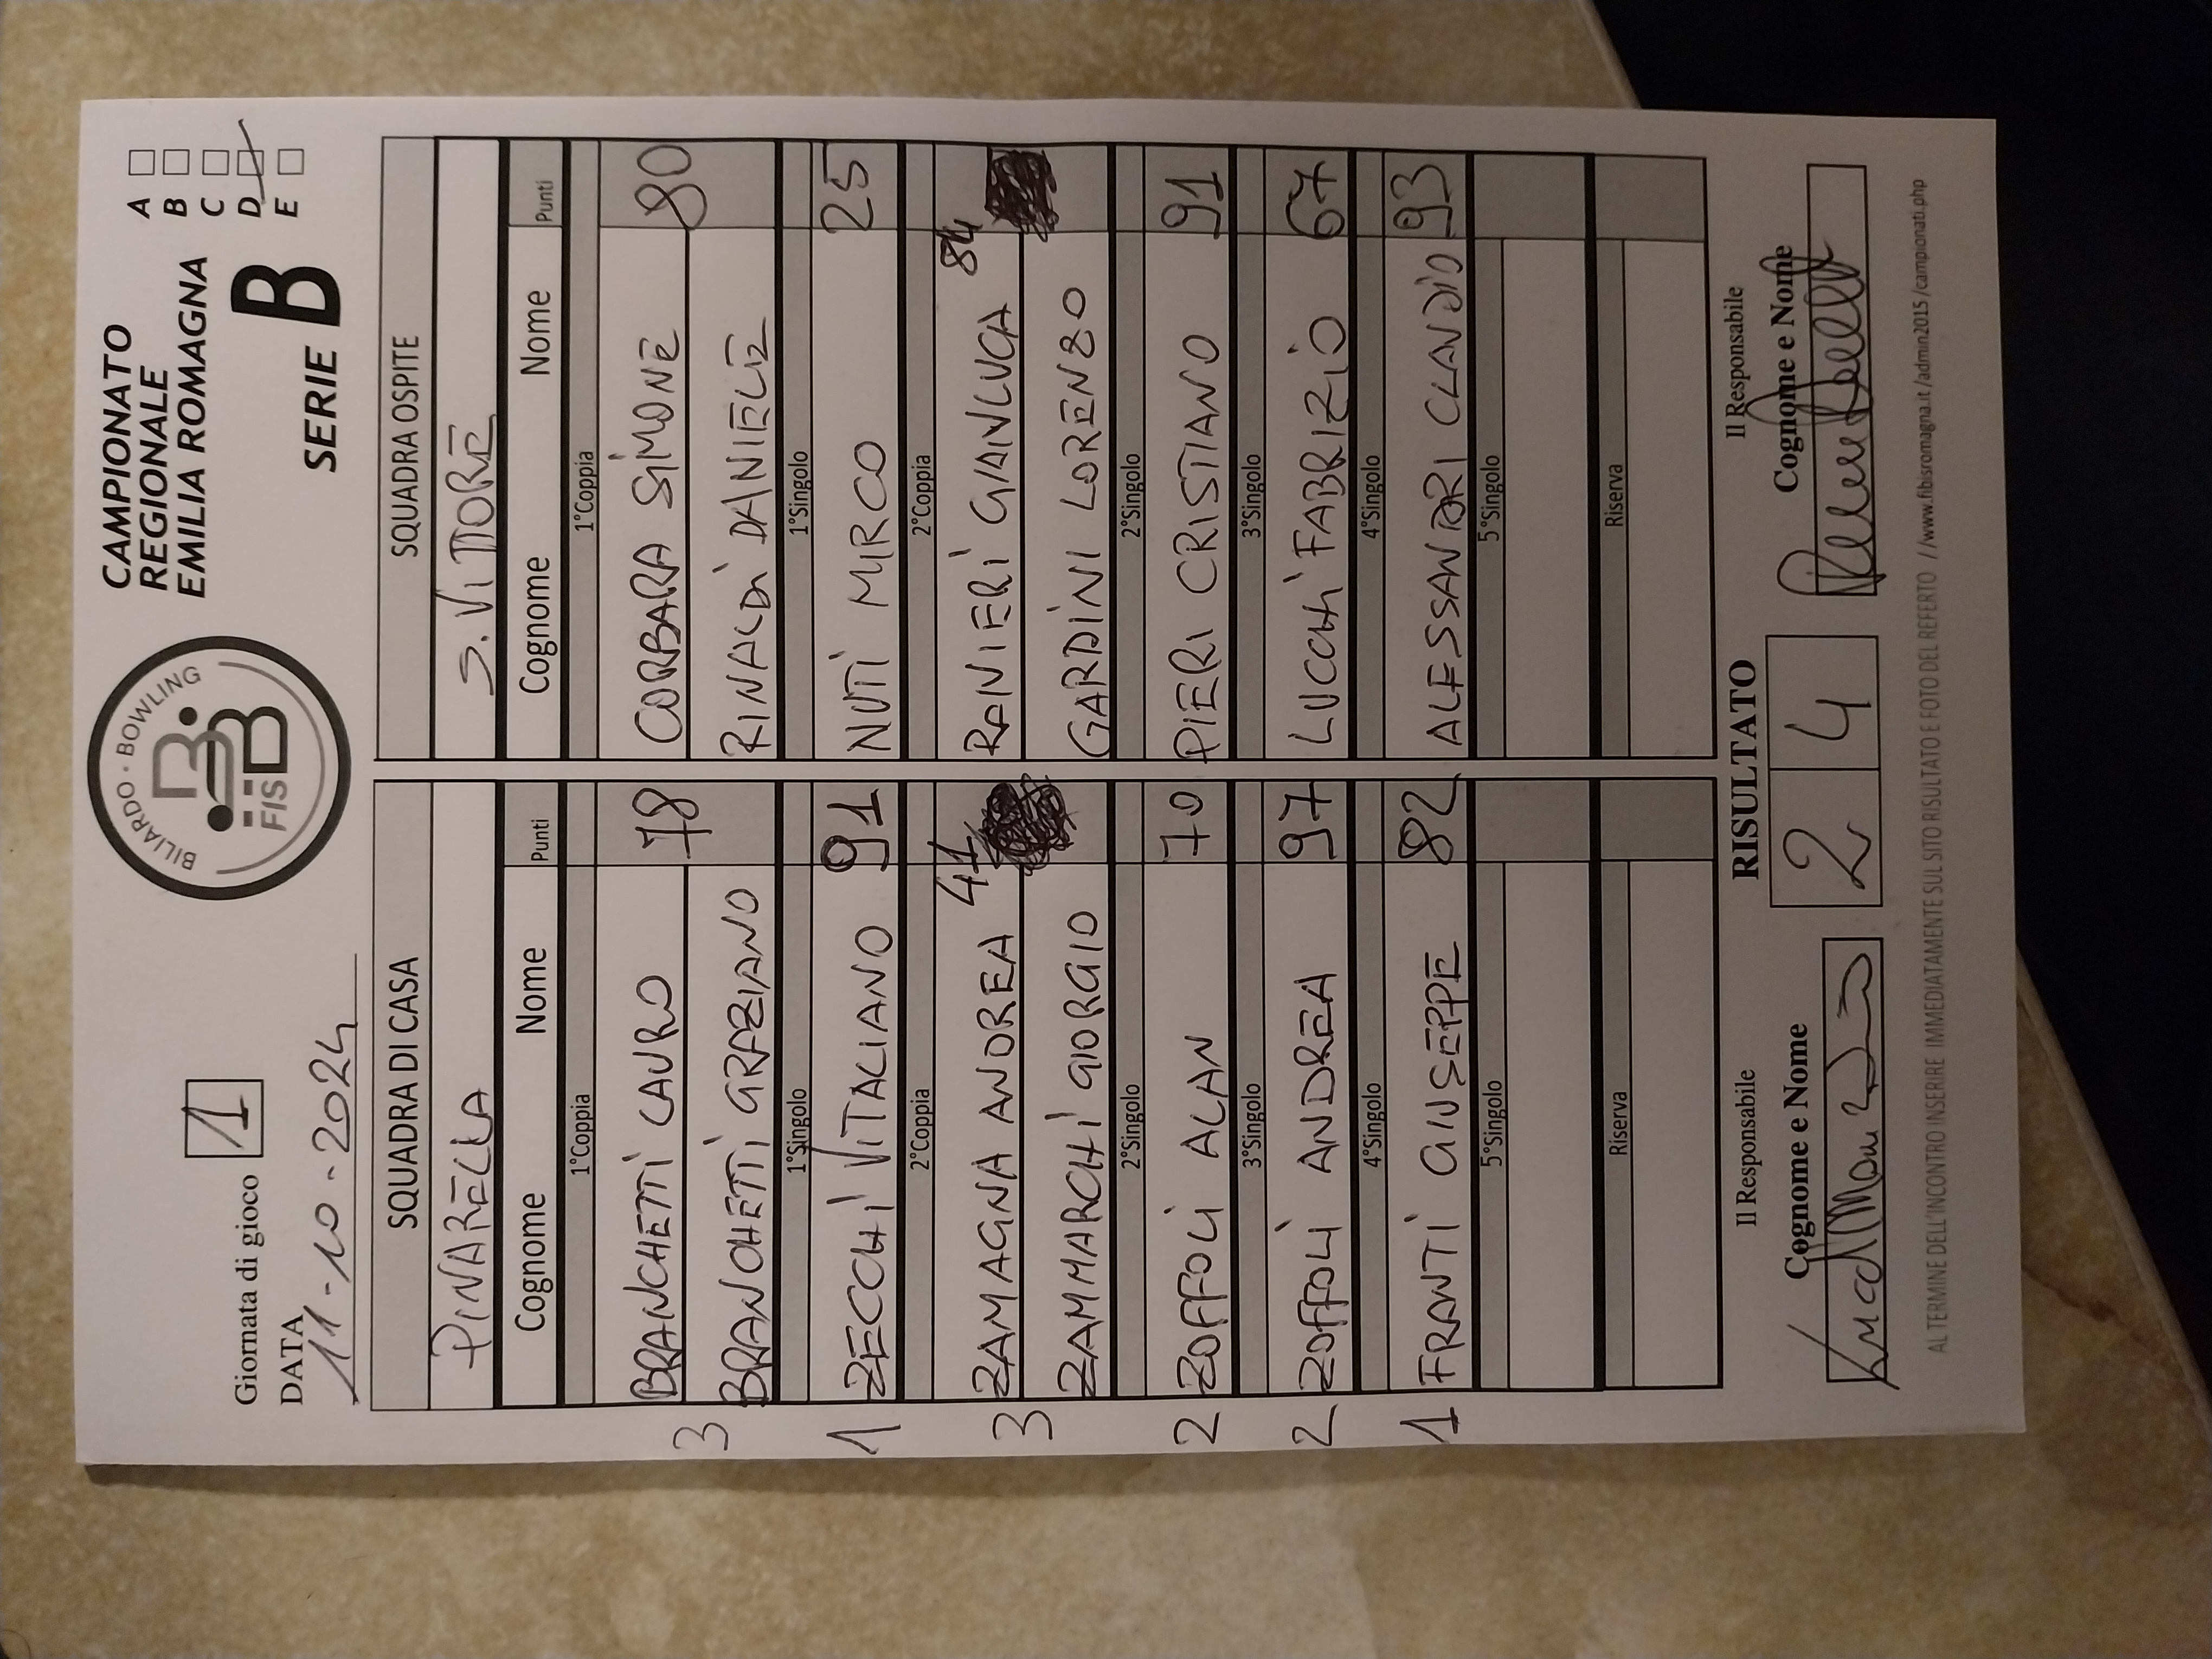 Giornata di gioco 1
DATA
11-10-2024
BILIARDO · BOWLING
FISBB
CAMPIONATO
REGIONALE
EMILIA ROMAGNA
SERIE B
A
B
C
D
E
SQUADRA DI CASA
PINARELLA
Cognome Nome Punti
1°Coppia
3 BRANCHETTI LAURO 78
BRANCHETTI GRAZIANO
1°Singolo
1 ZECCHI VITALIANO 91
2°Coppia
3 ZAMAGNA ANDREA 41
ZAMMARCHI GIORGIO
2°Singolo
2 ZOFFOLI ALAN 70
3°Singolo
2 ZOFFOLI ANDREA 97
4°Singolo
1 FRANTI GIUSEPPE 82
5°Singolo
Riserva
SQUADRA OSPITE
S. VITTORE
Cognome Nome Punti
1°Coppia
CORBARA SIMONE 80
RINALDI DANIELE
1°Singolo
NUTI MIRCO 25
2°Coppia
RANIERI GIANLUCA 84
GARDINI LORENZO
2°Singolo
PIERI CRISTIANO 91
3°Singolo
LUCCHI FABRIZIO 67
4°Singolo
ALESSANDRI CLAUDIO 93
5°Singolo
Riserva
Il Responsabile
Cognome e Nome
RISULTATO
2 4
Il Responsabile
Cognome e Nome
AL TERMINE DELL'INCONTRO INSERIRE IMMEDIATAMENTE SUL SITO RISULTATO E FOTO DEL REFERTO //www.fibisromagna.it/admin2015/campionati.php